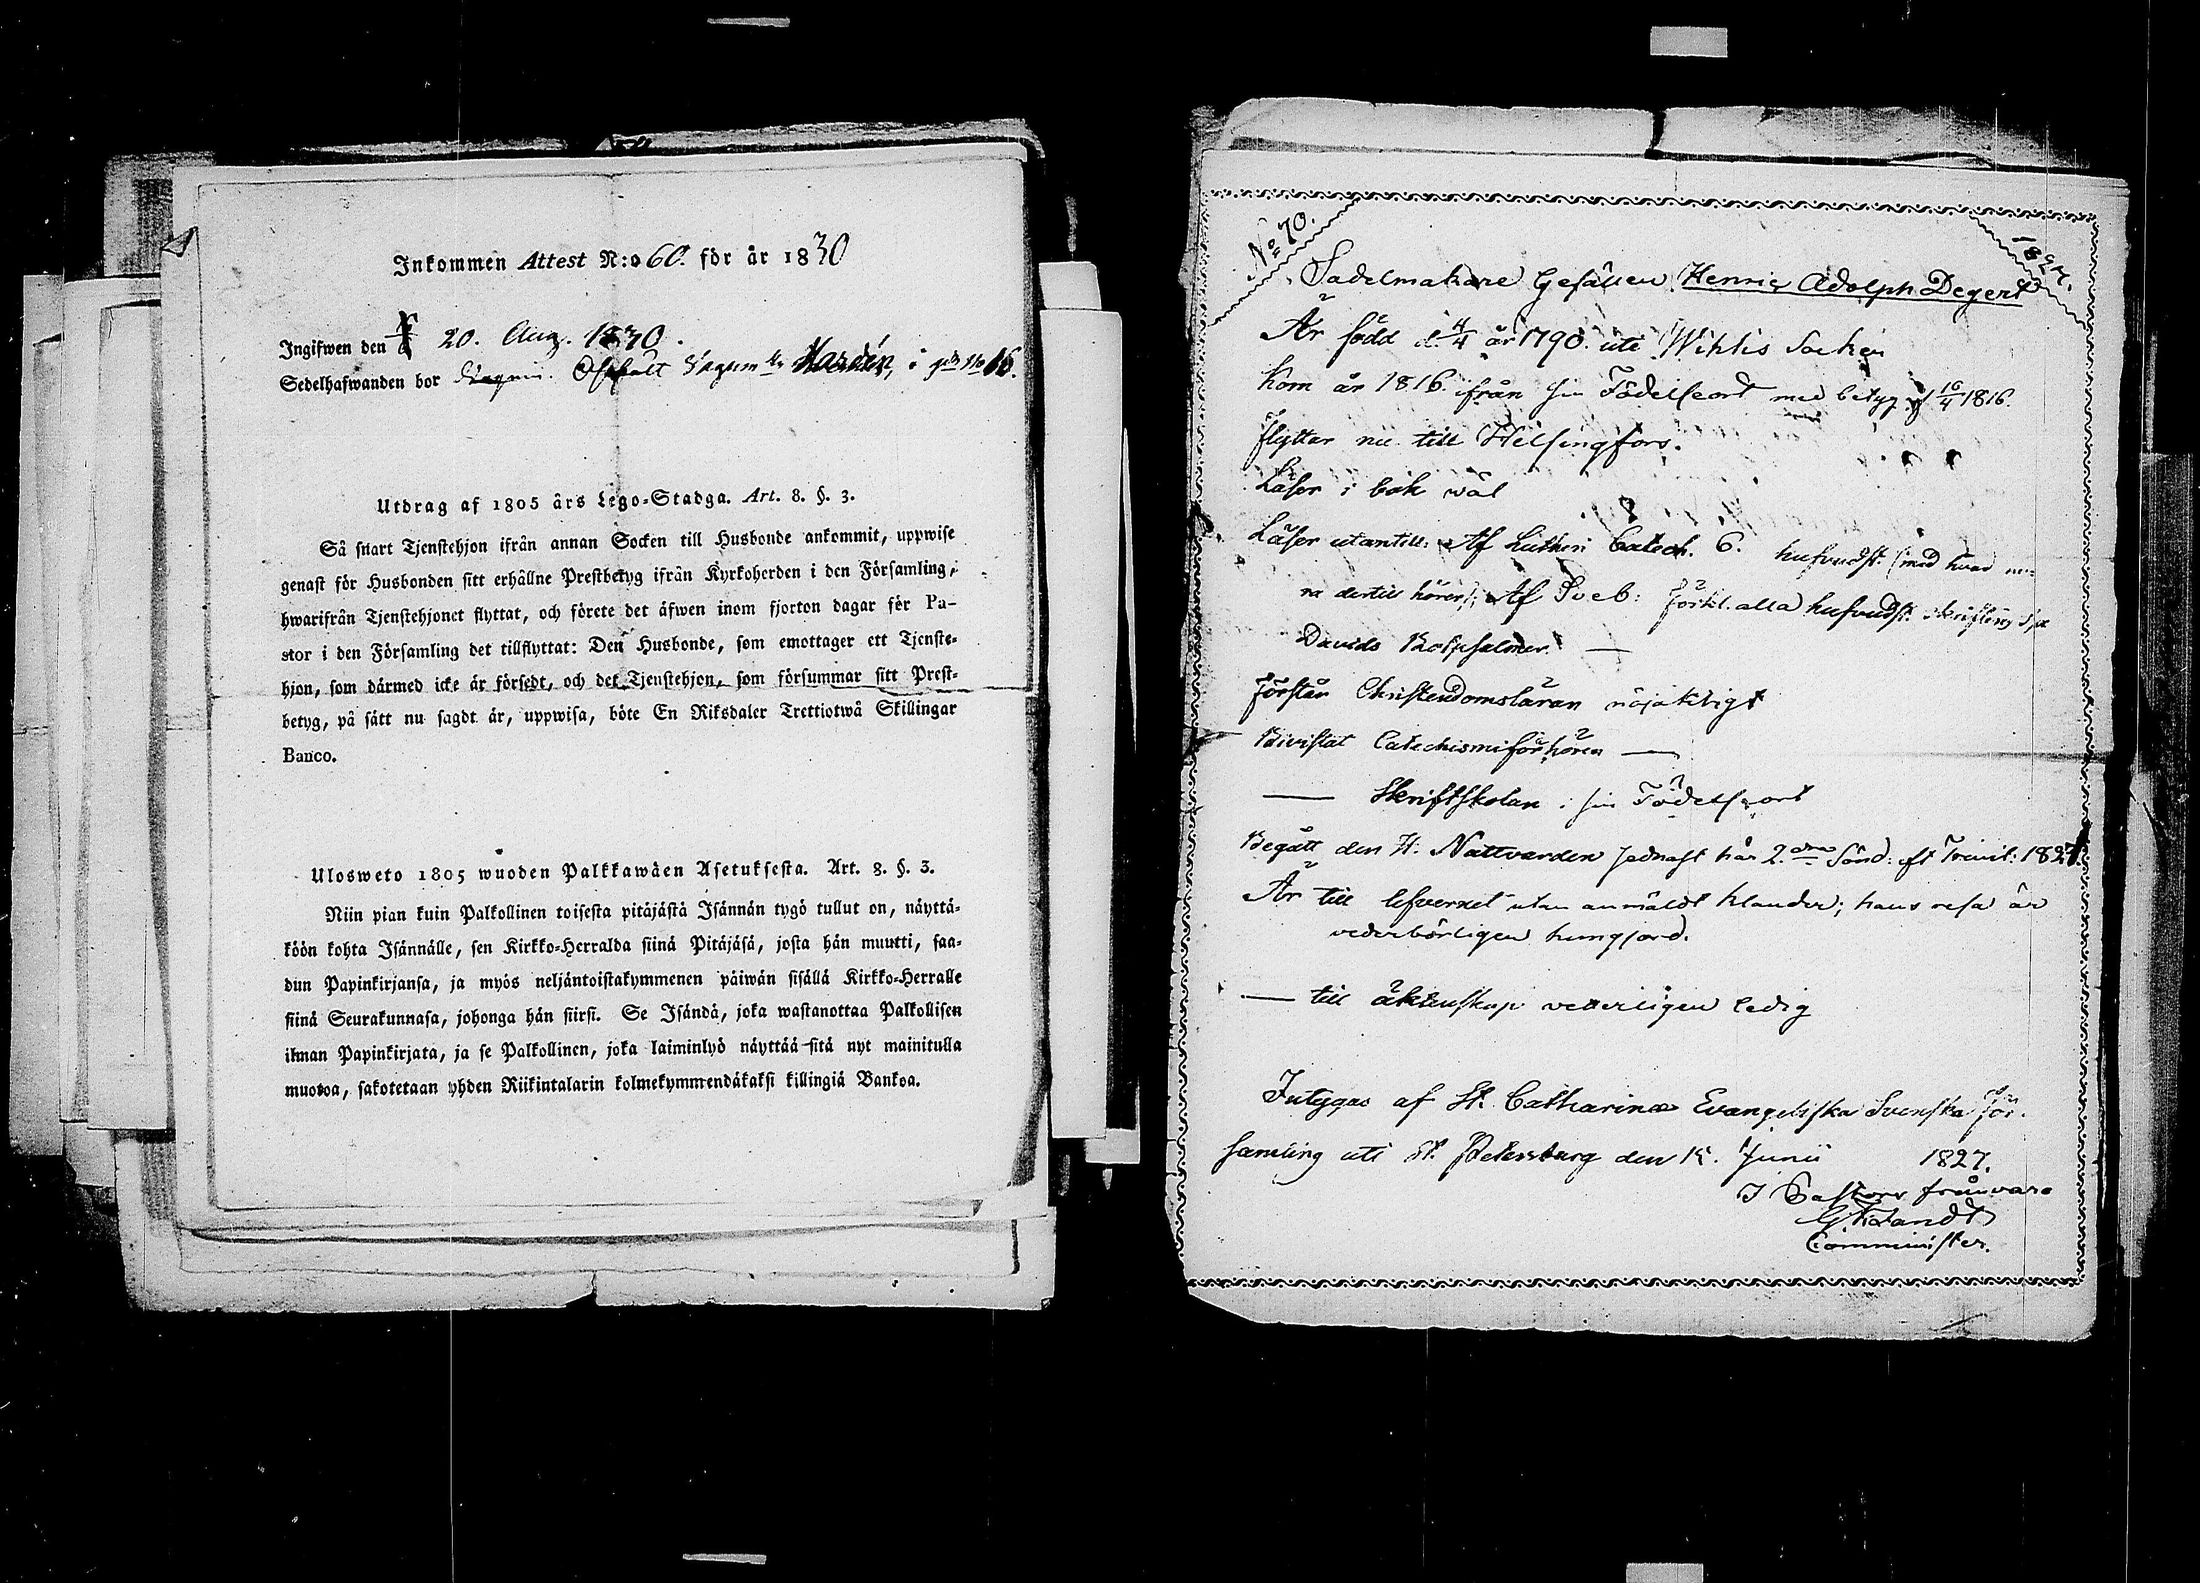 Inkommen Attest N:o 60. för år 1830
Ingifwen den 20. Aug. 1830.
Sedelhafwanden bor i No 16.
Utdrag af 1805 års Lego-Stadga. Art. 8. §. 3.
Så snart Tjenstehjon ifrån annan Socken till Husbonde ankommit, uppwise
genast för Husbonden sitt erhållne Prestbetyg ifrån Kyrkoherden i den Församling,
hwarifrån Tjenstehjonet flyttat, och förete det äfwen inom fjorton dagar för Pa-
stor i den Församling det tillflyttat: Den Husbonde, som emottager ett Tjenste-
hjon, som därmed icke är försedt, och det Tjenstehjon, som försummar sitt Prest-
betyg, på sätt nu sagdt är, uppwisa, böte En Riksdaler Trettiotwå Skillingar
Banco.
Ulosweto 1805 wuoden Palkkawäen Asetuksesta. Art. 8. §. 3.
Niin pian kuin Palkollinen toisesta pitäjästä Isännän tygö tullut on, näyttä-
köön kohta Isännälle, sen Kirkko-Herralda siinä Pitäjäsä, josta hän muutti, saa-
dun Papinkirjansa, ja myös neljäntoistakymmenen päiwän sisällä Kirkko-Herralle
siinä Seurakunnasa, johonga hän siirsi. Se Isändä, joka wastanottaa Palkollisen
ilman Papinkirjata, ja se Palkollinen, joka laiminlyö näyttää sitä nyt mainitulla
muotoa, sakotetaan yhden Riikintalarin kolmekymmendäkaksi killingiä Bankoa.
No 70.
1827.
Sadelmakare Gesällen Henric Adolph Degert
Är född d. 4/4 år 1790. uti Wihtis Socken
Kom år 1816. ifrån sin Födelseort med betyg 16/4 1816.
flyttar nu till Helsingfors.
Läser i bok väl
Läser utantill: Af Lutheri Catech. 6. hufvudst. (med hvad me-
ra dertill hörer); Af Sveb: förkl. alla hufvudst.
Davids Botpsalmer. —
Förstår Christendomsläran nöjaktigt
Bivistat Catechismiförhören —
— Skriftskolan i sin Födelseort
Begått den H. Nattvarden sednast här 2.dra Sönd: eft Trinit: 1827.
Är till lefvernet utan anmäldt klander; hans resa är
vederbörligen kungjord.
— till äktenskap vetterligen ledig
Intygas af St. Catharinæ Evangeliska Svenska För-
samling uti St. Petersburg den 15. Junii 1827.
I Pastors frånvaro
Comminister.